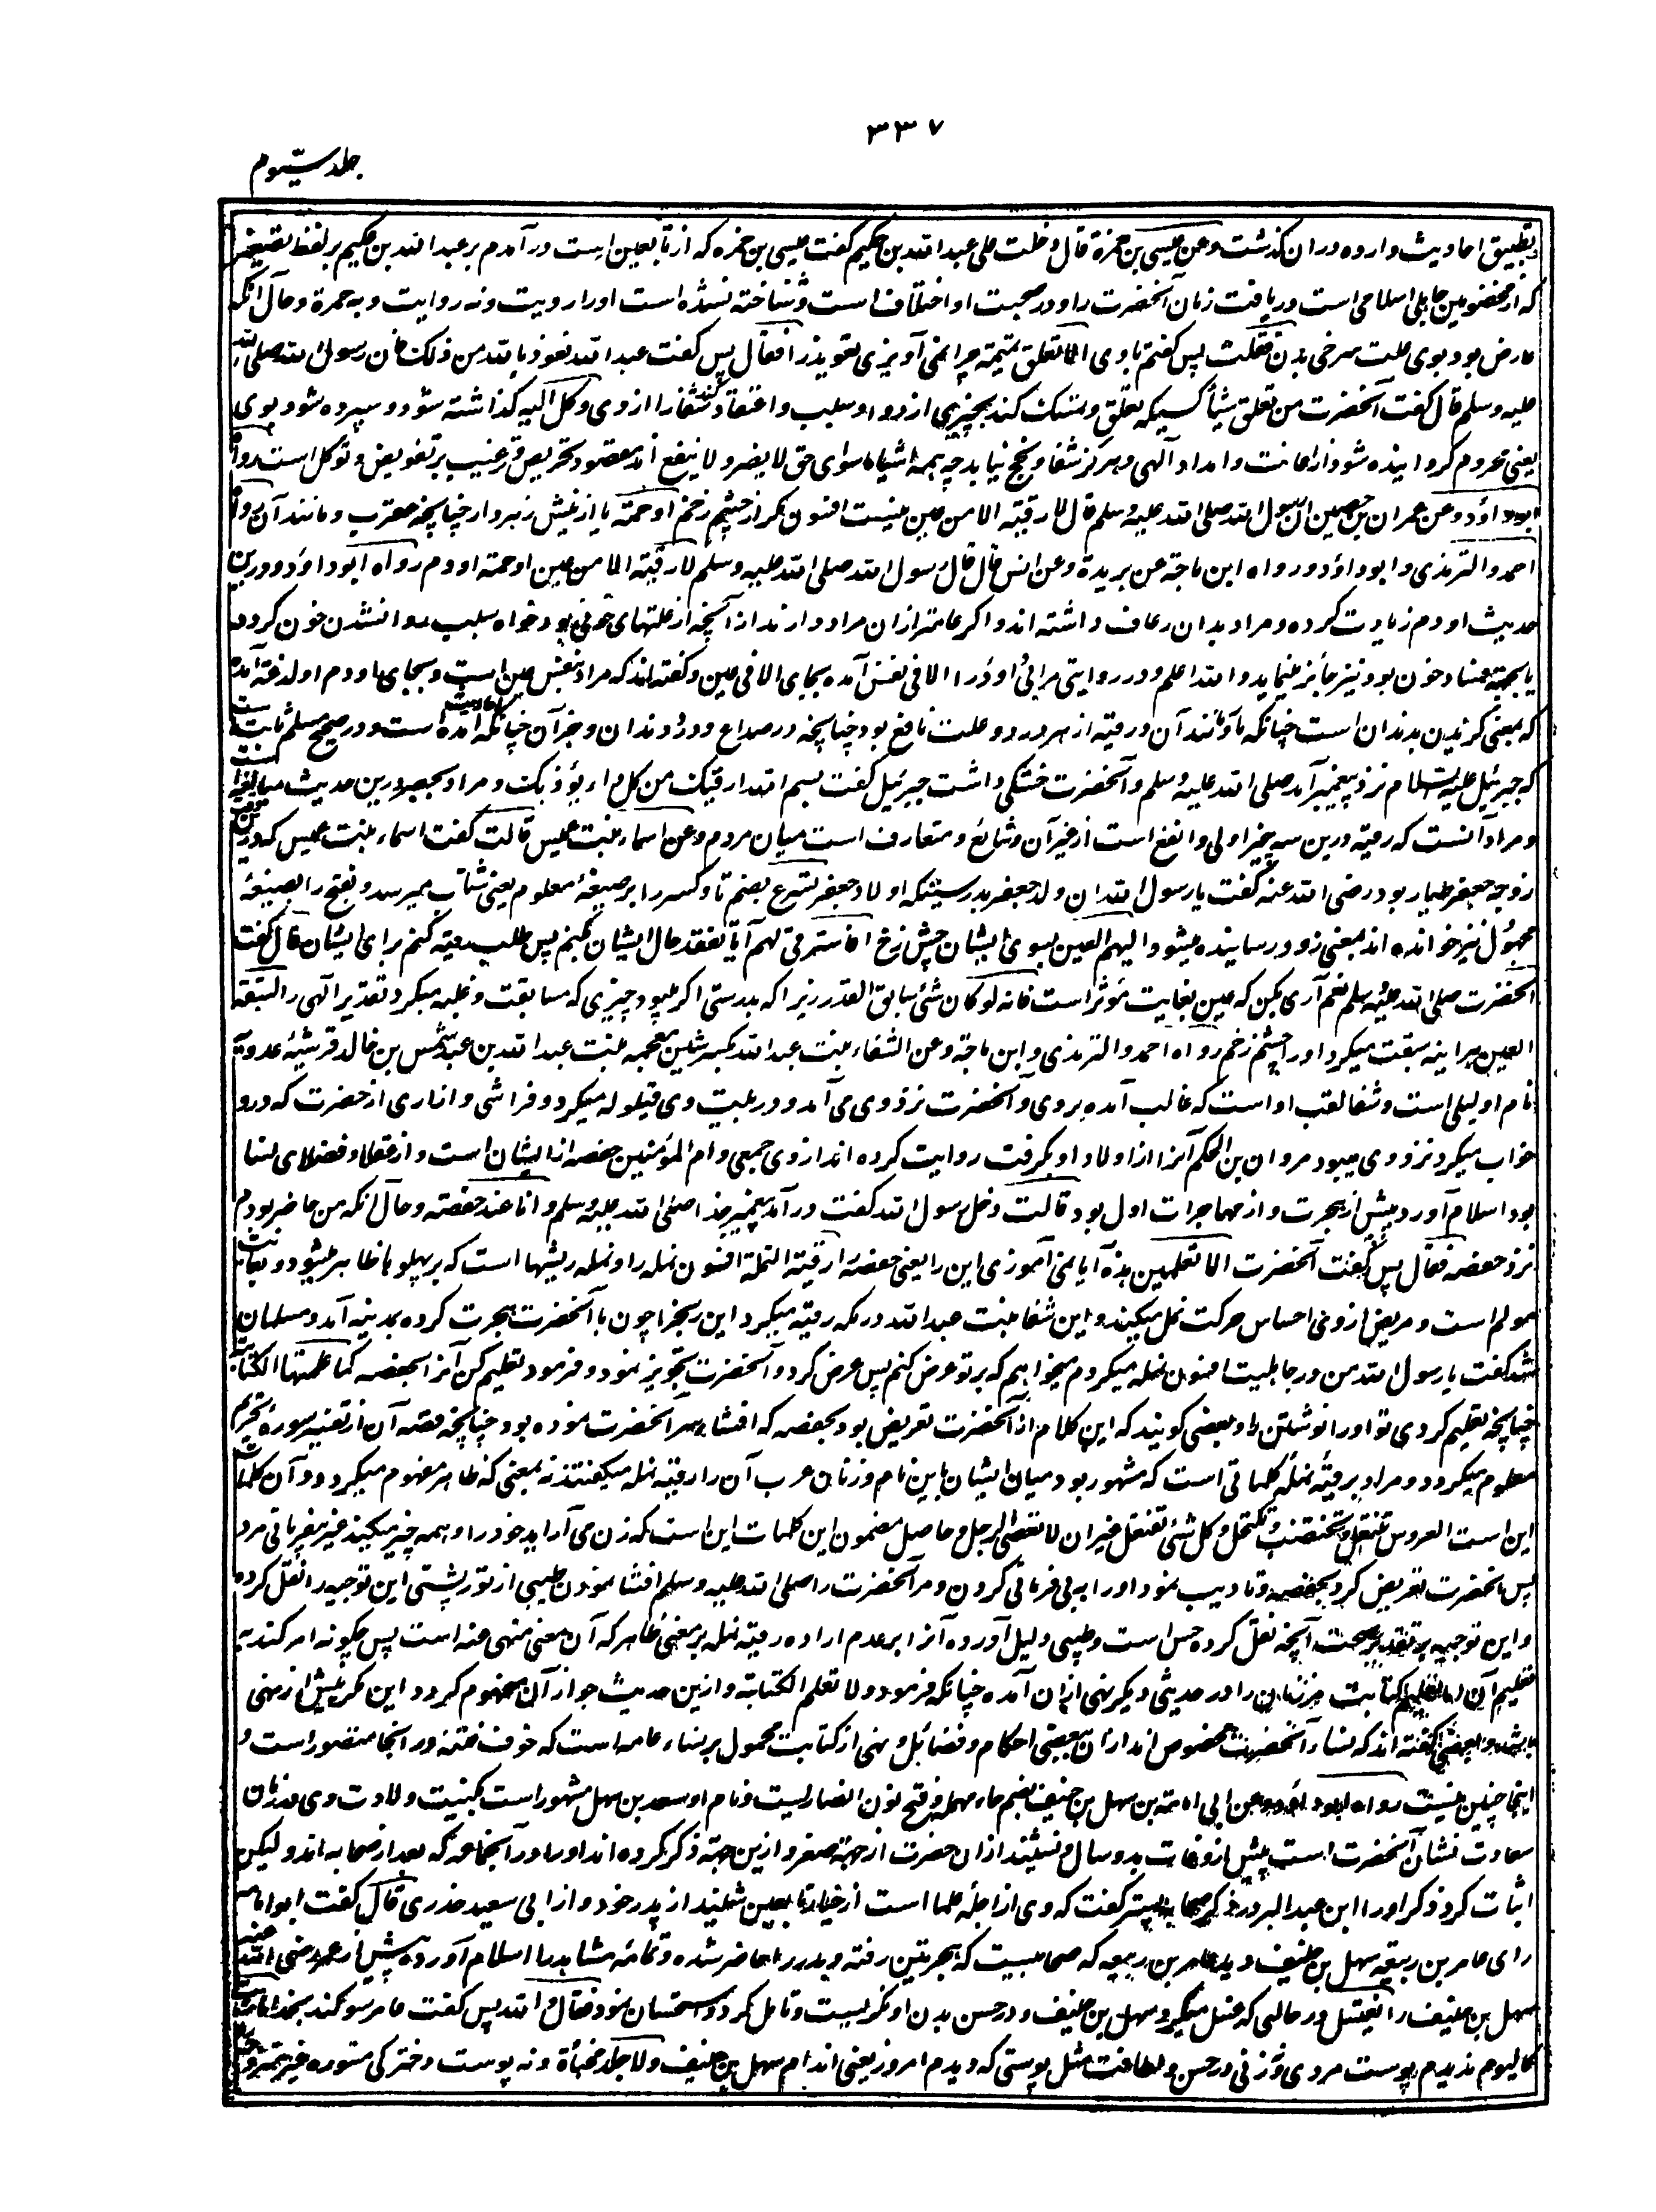 ۳۳۷
جلد سیوم
تطبیق احادیث وارده دران گذشت وعن عیسی بن حمزة قال دخلت علی عبد الله بن حکیم گفت عیسی بن حمزه که از تابعین است درآمدم بر عبد الله بن حکیم بر لفظ تصغیر
که از مخضرمین جاهلی اسلامی است دریافت زمان آنحضرت را و در صحبت او اختلاف است و شناخته نشده است او را رویت و نه روایت وبه حمرة وحال آنکه
عارض بود بوی علت سرخی بدن فقلت پس گفتم باوی الا تعلق تمیمة چرا نمی آویزی تعویذ را فقال پس گفت عبد الله نعوذ بالله من ذلک فان رسول الله صلی الله
علیه وسلم قال گفت آنحضرت من تعلق شیأ کسیکه تعلق و تمسک کند بچیزی از دوا و سلب و اعتقاد کند شفا را از وی وکل الیه گذاشته شود و سپرده شود بوی
یعنی محروم گردانیده شود از اعانت و امداد الهی و هرگز شفا و نجح نیابد چه همه اشیاء ماسوای حق لا یضر ولا ینفع اند مقصود تحریص و ترغیب بر تفویض و توکل است رواه
ابوداؤد وعن عمران بن حصین ان رسول الله صلی الله علیه وسلم قال لا رقیة الا من عین نیست افسون مگر از چشم زخم او حمة یا از نیش زهردار چنانچه عقرب و مانند آن رواه
احمد والترمذی وابو داؤد ورواه ابن ماجة عن بریدة وعن انس قال قال رسول الله صلی الله علیه وسلم لا رقیة الا من عین او حمة او دم رواه ابو داؤد و درین
حدیث او دم زیادت کرده و مراد بدان رعاف داشته اند و اگر عامتر ازان مراد دارند از آنچه از علتهای خونی بود خواه بسبب روانشدن خون گردد
یا بجهة فساد خون بود نیز جائز مینماید والله اعلم و در روایتی مرابی داؤد را الا فی نفس آمده بجای الا فی عین و گفته اند که مراد بنفس عین است و بجای او دم او لدغة آمده
که بمعنی گزیدن بدندان است چنانکه مار و مانند آن و رقیه از هر درد و علت نافع بود چنانچه در صداع و درد دندان و جز آن چنانکه در احادیث آمده است و در صحیح مسلم ثابت است
که جبرئیل علیه السلام نزد پیغمبر آمد صلی الله علیه وسلم و آنحضرت خستگی داشت جبرئیل گفت بسم الله ارقیک من کل داء یؤذیک و مراد بحصر درین حدیث مبالغه است
و مراد آنست که رقیه درین سه چیز اولی و انفع است از غیر آن و شائع و متعارف است میان مردم وعن اسماء بنت عمیس قالت گفت اسماء بنت عمیس که در
زوجه جعفر طیار بود رضی الله عنه گفت یا رسول الله ان ولد جعفر بدرستیکه اولاد جعفر تسرع بضم تا و کسر را بر صیغهٔ معلوم یعنی شتاب میرسد و بفتح را بصیغهٔ
مجهول نیز خوانده اند بمعنی زود رسانیده میشود الیهم العین بسوی ایشان چشم زخ افاسترقی لهم آیا تفقد حال ایشان نکنم پس طلب رقیه کنم برای ایشان قال گفت
آنحضرت صلی الله علیه وسلم نعم آری بکن که عین بغایت مؤثر است فانه لو کان شئ سابق القدر زیرا که بدرستی اگر میبود چیزی که مسابقت و غلبه میکرد تقدیر الهی را لسبقه
العین هر اینه سبقت میکرد او را چشم زخم رواه احمد والترمذی وابن ماجة وعن الشفاء بنت عبد الله بکسر شین معجمه بنت عبد الله بن عبد شمس بن خالد قرشیهٔ عدویه
نام او لیلی است و شفا لقب او است که غالب آمده بر وی و آنحضرت نزد وی می آمد و در بیت وی قیلوله میکرد و فراشی و ازاری از حضرت که درو
خواب میکرد نزد وی میبود مروان بن الحکم آنرا از اولاد او بگرفت روایت کرده اند از وی جمعی و ام المؤمنین حفصه از ایشان است و از عقلا و فضلای نسا
بود اسلام آورد پیش از هجرت و از مهاجرات اول بود قالت دخل رسول الله گفت درآمد پیغمبر خدا صلی الله علیه وسلم وانا عند حفصة و حال آنکه من حاضر بودم
نزد حفصه فقال پس گفت آنحضرت الا تعلمین هذه آیا نمی آموزی این را یعنی حفصه را رقیة النملة افسون نمله را و نمله ریشها است که بر پهلوها ظاهر میشود و بغایت
مولم است و مریض از وی احساس حرکت نمل میکند و این شفا بنت عبد الله در مکه رقیه میکرد این رنج را چون با آنحضرت هجرت کرده بمدینه آمد و مسلمان
شد گفت یا رسول الله من در جاهلیت افسون نمله میکردم میخواهم که بر تو عرض کنم پس عرض کرد و آنحضرت تجویز نمود و فرمود تعلیم کن آنرا بحفصه کما علمتها الکتابة
چنانچه تعلیم کردی تو او را نوشتن را و بعضی گویند که این کلام از آنحضرت تعریض بود بحفصه که افشاء سر آنحضرت نموده بود چنانچه قصه آن از تفسیر سورهٔ تحریم
معلوم میگردد و مراد برقیهٔ نمله کلماتی است که مشهور بود میان ایشان باین نام و زنان عرب آن را رقیهٔ نمله میگفتند نه بمعنی که ظاهر مفهوم میگردد و آن کلمات
این است العروس تنتعل و تختضب و تکتحل وکل شئ تفتعل غیر ان لا تعصی الرجل و حاصل مضمون این کلمات این است که زن می آراید خود را و همه چیز میکند غیر بیفرمانی مرد
پس آنحضرت تعریض کرد بحفصه و تادیب نمود او را به بی فرمانی کردن و مر آنحضرت را صلی الله علیه وسلم افشا نمودن طیبی از تورپشتی این توجیه را نقل کرده
و این توجیه بر تقدیر صحت آنچه نقل کرده حسن است و طیبی دلیل آورده آنرا بر عدم اراده رقیه نمله بر معنیٔ ظاهر که آن معنی منهی عنه است پس چگونه امر کند به
تعلیم آن اما تعلیم کتابت مر زنان را در حدیثی دیگر نهی ازان آمده چنانکه فرموده ولا تعلم الکتابة و ازین حدیث جواز آن مفهوم گردد این مگر پیش از نهی
باشد و بعضی گفته اند که نساء آنحضرت مخصوص اند ازان ببعضی احکام و فضائل و نهی از کتابت محمول بر نساء عامه است که خوف فتنه در انجا متصور است و
اینجا چنین نیست رواه ابو داؤد وعن ابی امامة بن سهل بن حنیف بضم حاء مهمله و فتح نون انصاریست و نام او سعد بن سهل مشهور است بکنیت ولادت وی در زمان
سعادت نشان آنحضرت است پیش از وفات بدو سال و نشنید ازان حضرت از جهة صغر و ازین جهة ذکر کرده اند او را در آنجماعه که بعد از صحابه اند و لیکن
اثبات کرد ذکر او را ابن عبد البر در ذکر صحابه پستر گفت که وی از اجلهٔ علما است از خیار تابعین شنید از پدر خود و از ابی سعید خدری قال گفت ابو امامه
رای عامر بن ربیعه سهل بن حنیف دید عامر بن ربیعه که صحابیست که بهجرتین رفته و بدر را حاضر شده و تمامهٔ مشاهد را اسلام آورده پیش از عمر رضی الله عنه
سهل بن حنیف را یغتسل در حالی که غسل میکرد سهل بن حنیف و در حسن بدن او نگریست و تامل کرد و استحسان نمود فقال والله پس گفت عامر سوگند بخدا ما رایت
کالیوم ندیدم پوست مردی و زنی در حسن و لطافت مثل پوستی که دیدم امروز یعنی اندام سهل بن حنیف ولا جلد مخبأة و نه پوست دخترکی مستوره غیر متزوجه